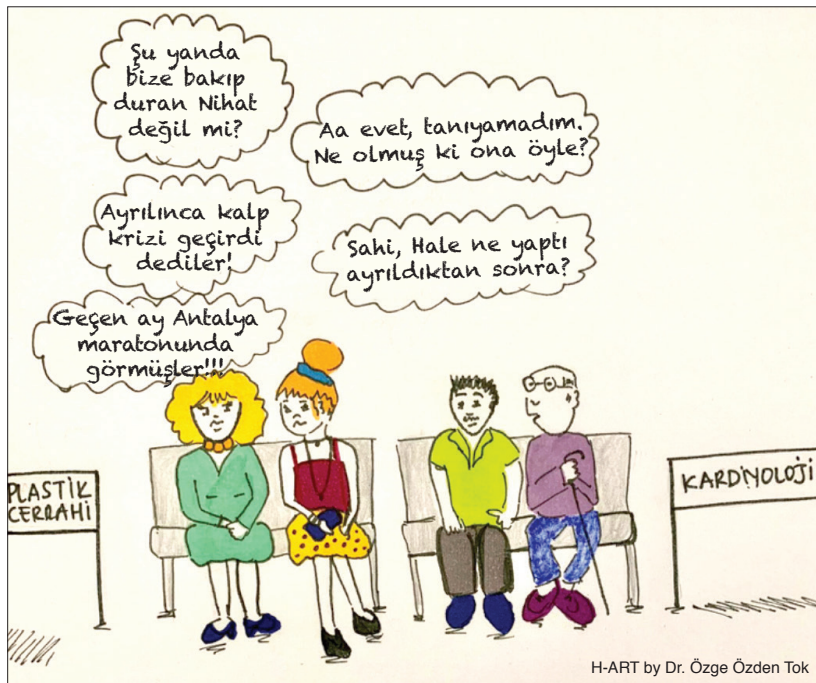 Şu yanda
bize bakıp
duran Nihat
değil mi?
Aa evet, tanıyamadım.
Ne olmuş ki ona öyle?
Ayrılınca kalp
krizi geçirdi
dediler!
Sahi, Hale ne yaptı
ayrıldıktan sonra?
Geçen ay Antalya
maratonunda
görmüşler!!!
PLASTİK
CERRAHİ
KARDİYOLOJİ
H-ART by Dr. Özge Özden Tok